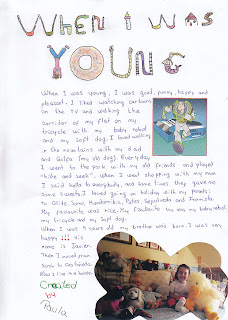 WHEN I WAS
YOUNG
When I was young, I was good, funny, happy and
pleasant. I liked watching cartoons
on the TV and walking the
corridor of my flat on my
tricycle with my baby robot
and my soft dog. I loved walking
in the mountains with my dad
and Golfa (my old dog). Everyday
I went to the park with my old friends and played
"hide and seek". When I went shopping with my mum
I said hello to everybody, and some times they gave me
some sweets. I loved going on holiday with my parents
to Olite, Jaca, Pobles, Sepulveda and
My favourite was rice. My favourite toy was my baby robot,
my tricycle and my soft dog.
When I was 3 years old my brother was born. I was very
happy !!! His
name is Javier.
Then I moved from
to
Now I live in a house.
Created
by
Paula